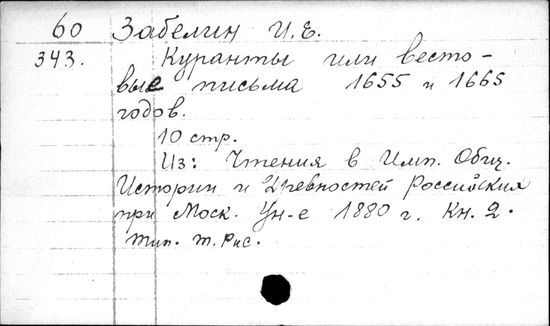 60 Забелин И.Е.
343. Куранты или весто-
вые письма 1655 и 1665
годов.
10 стр.
Из: Чтения в Имп. Общ.
Истории и Древностей Российских
при Моск. Ун-е 1880 г. Кн. 2.
Тип. т. Рис.